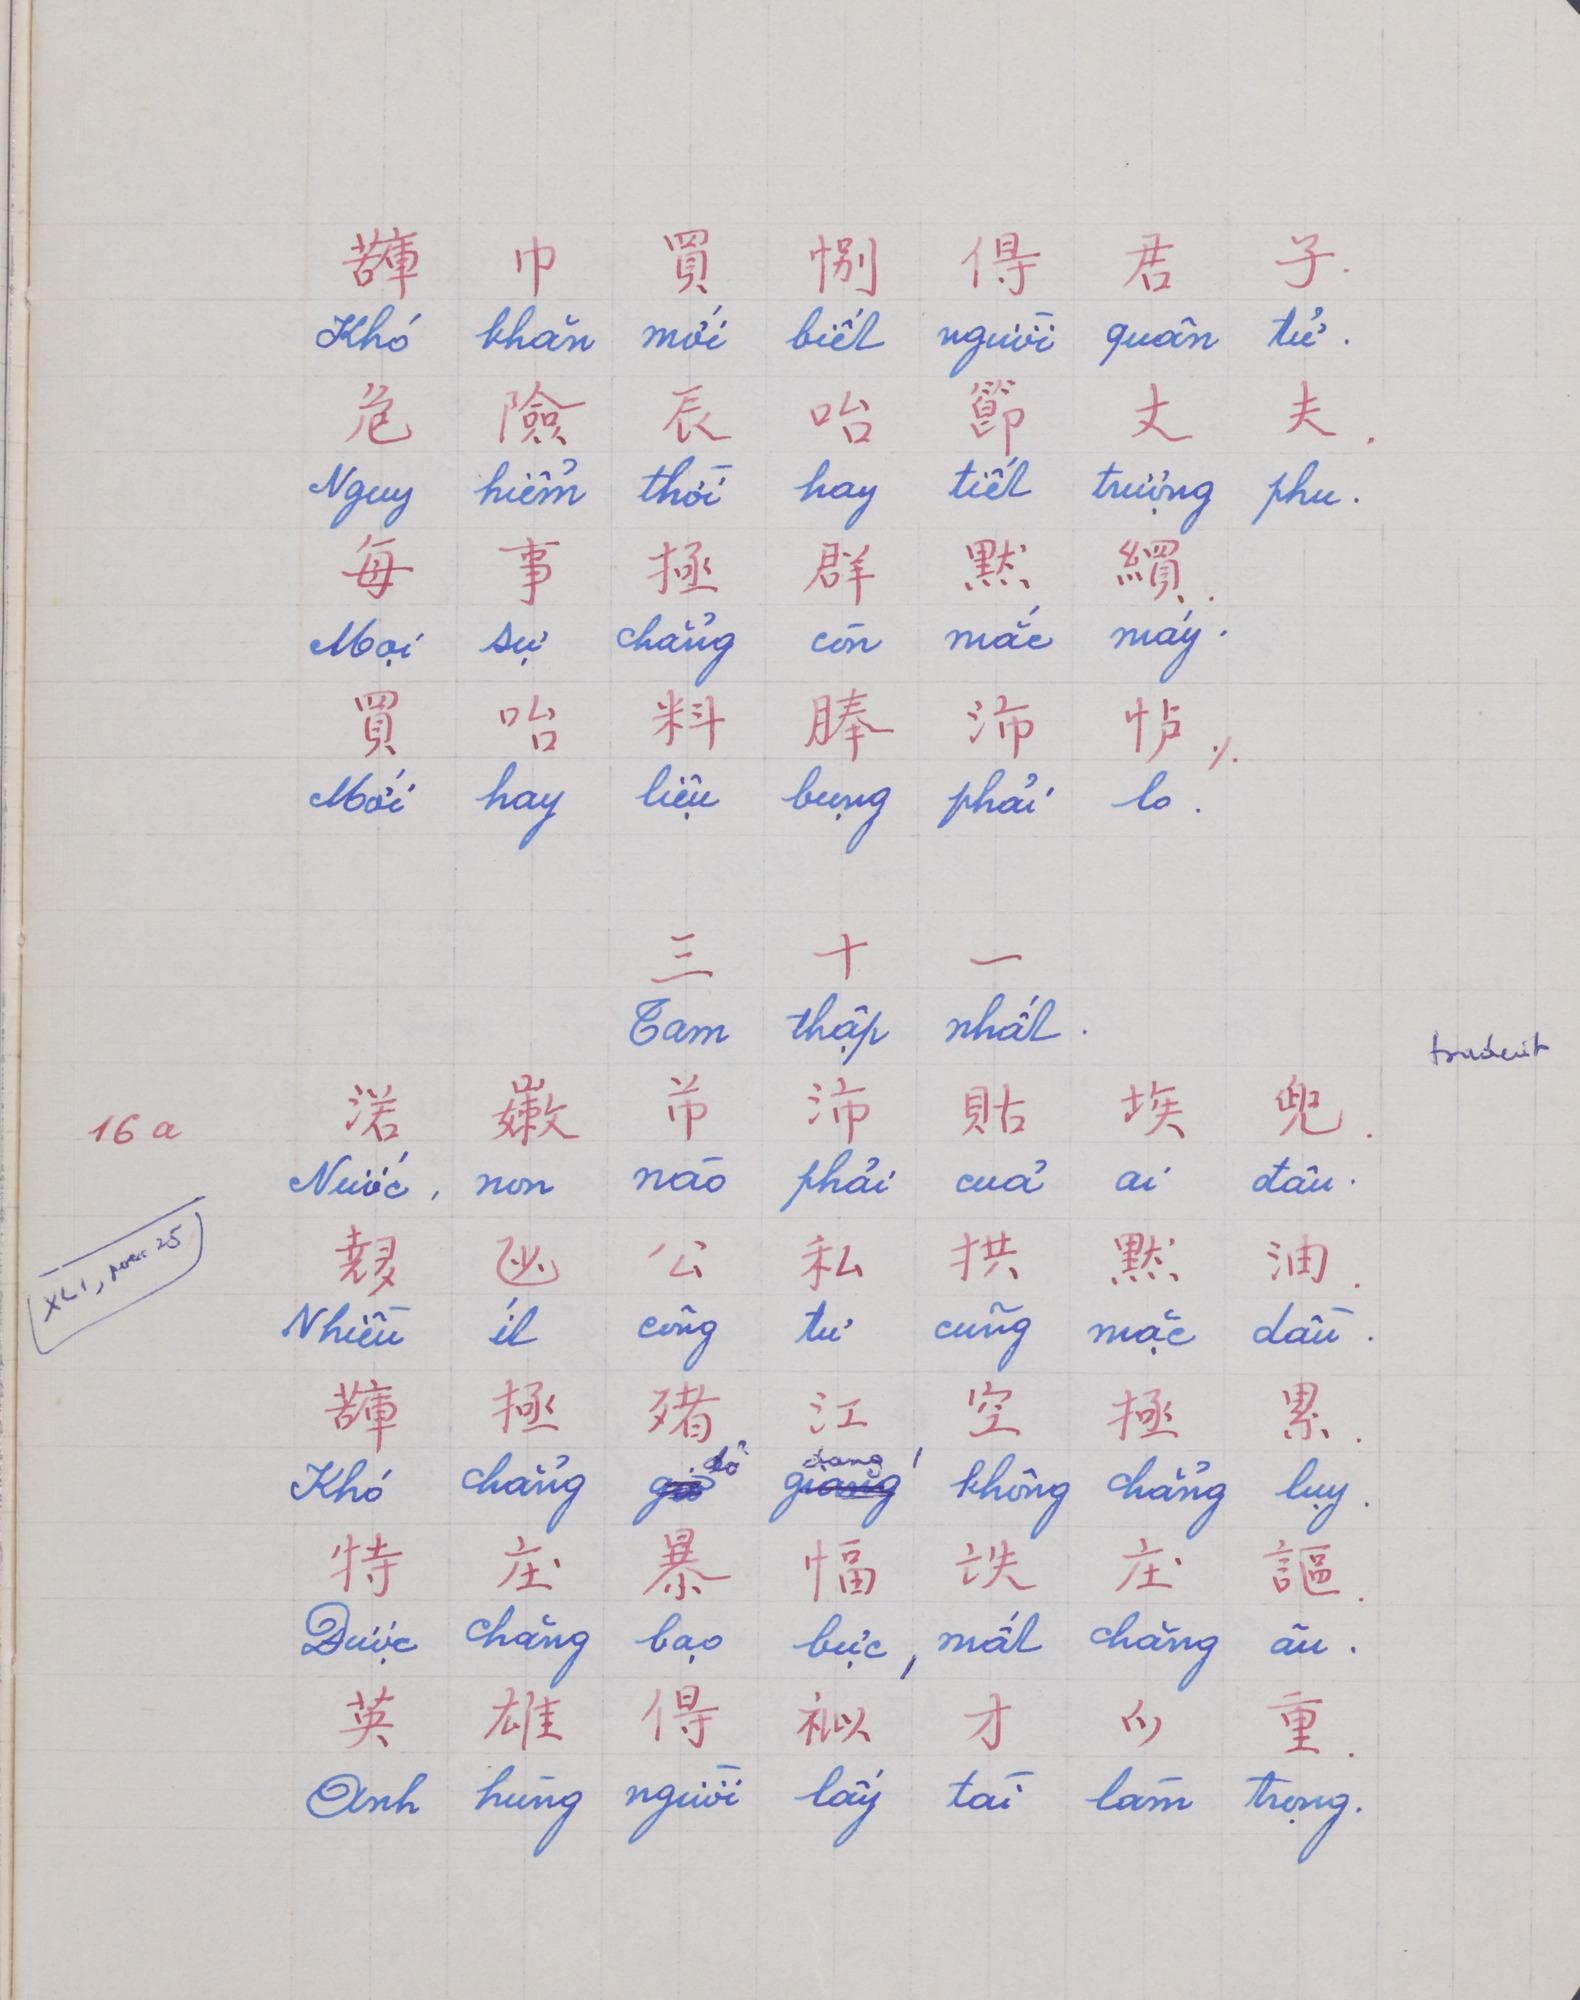 巾 買 得 君 子.
Khó khăn mới biết người quân tử.
危 險 辰 咍 節 丈 夫.
Nguy hiểm thời hay tiết trượng phu.
每 事 拯 群 默 繏.
Mọi sự chẳng còn mắc máy.
買 咍 料 沛 怙
Mới hay liệu bụng phải lo.
三 十 一
Tam thập nhất.
trước
渃 嫩 芇 沛 貼 埃 兜.
16a
Nước, non nào phải của ai đâu.
公 私 拱 默 油.
XLI, 25
Nhiều ít công tư cũng mặc dầu.
拯 江 空 拯 累.
đồ dang
Khó chẳng giồ giang không chẳng lụy.
特 庄 暴 愊 庄 謳.
Được chăng bạo bực, mất chăng âu.
英 雄 得 才 重.
Anh hùng người lấy tài làm trọng.